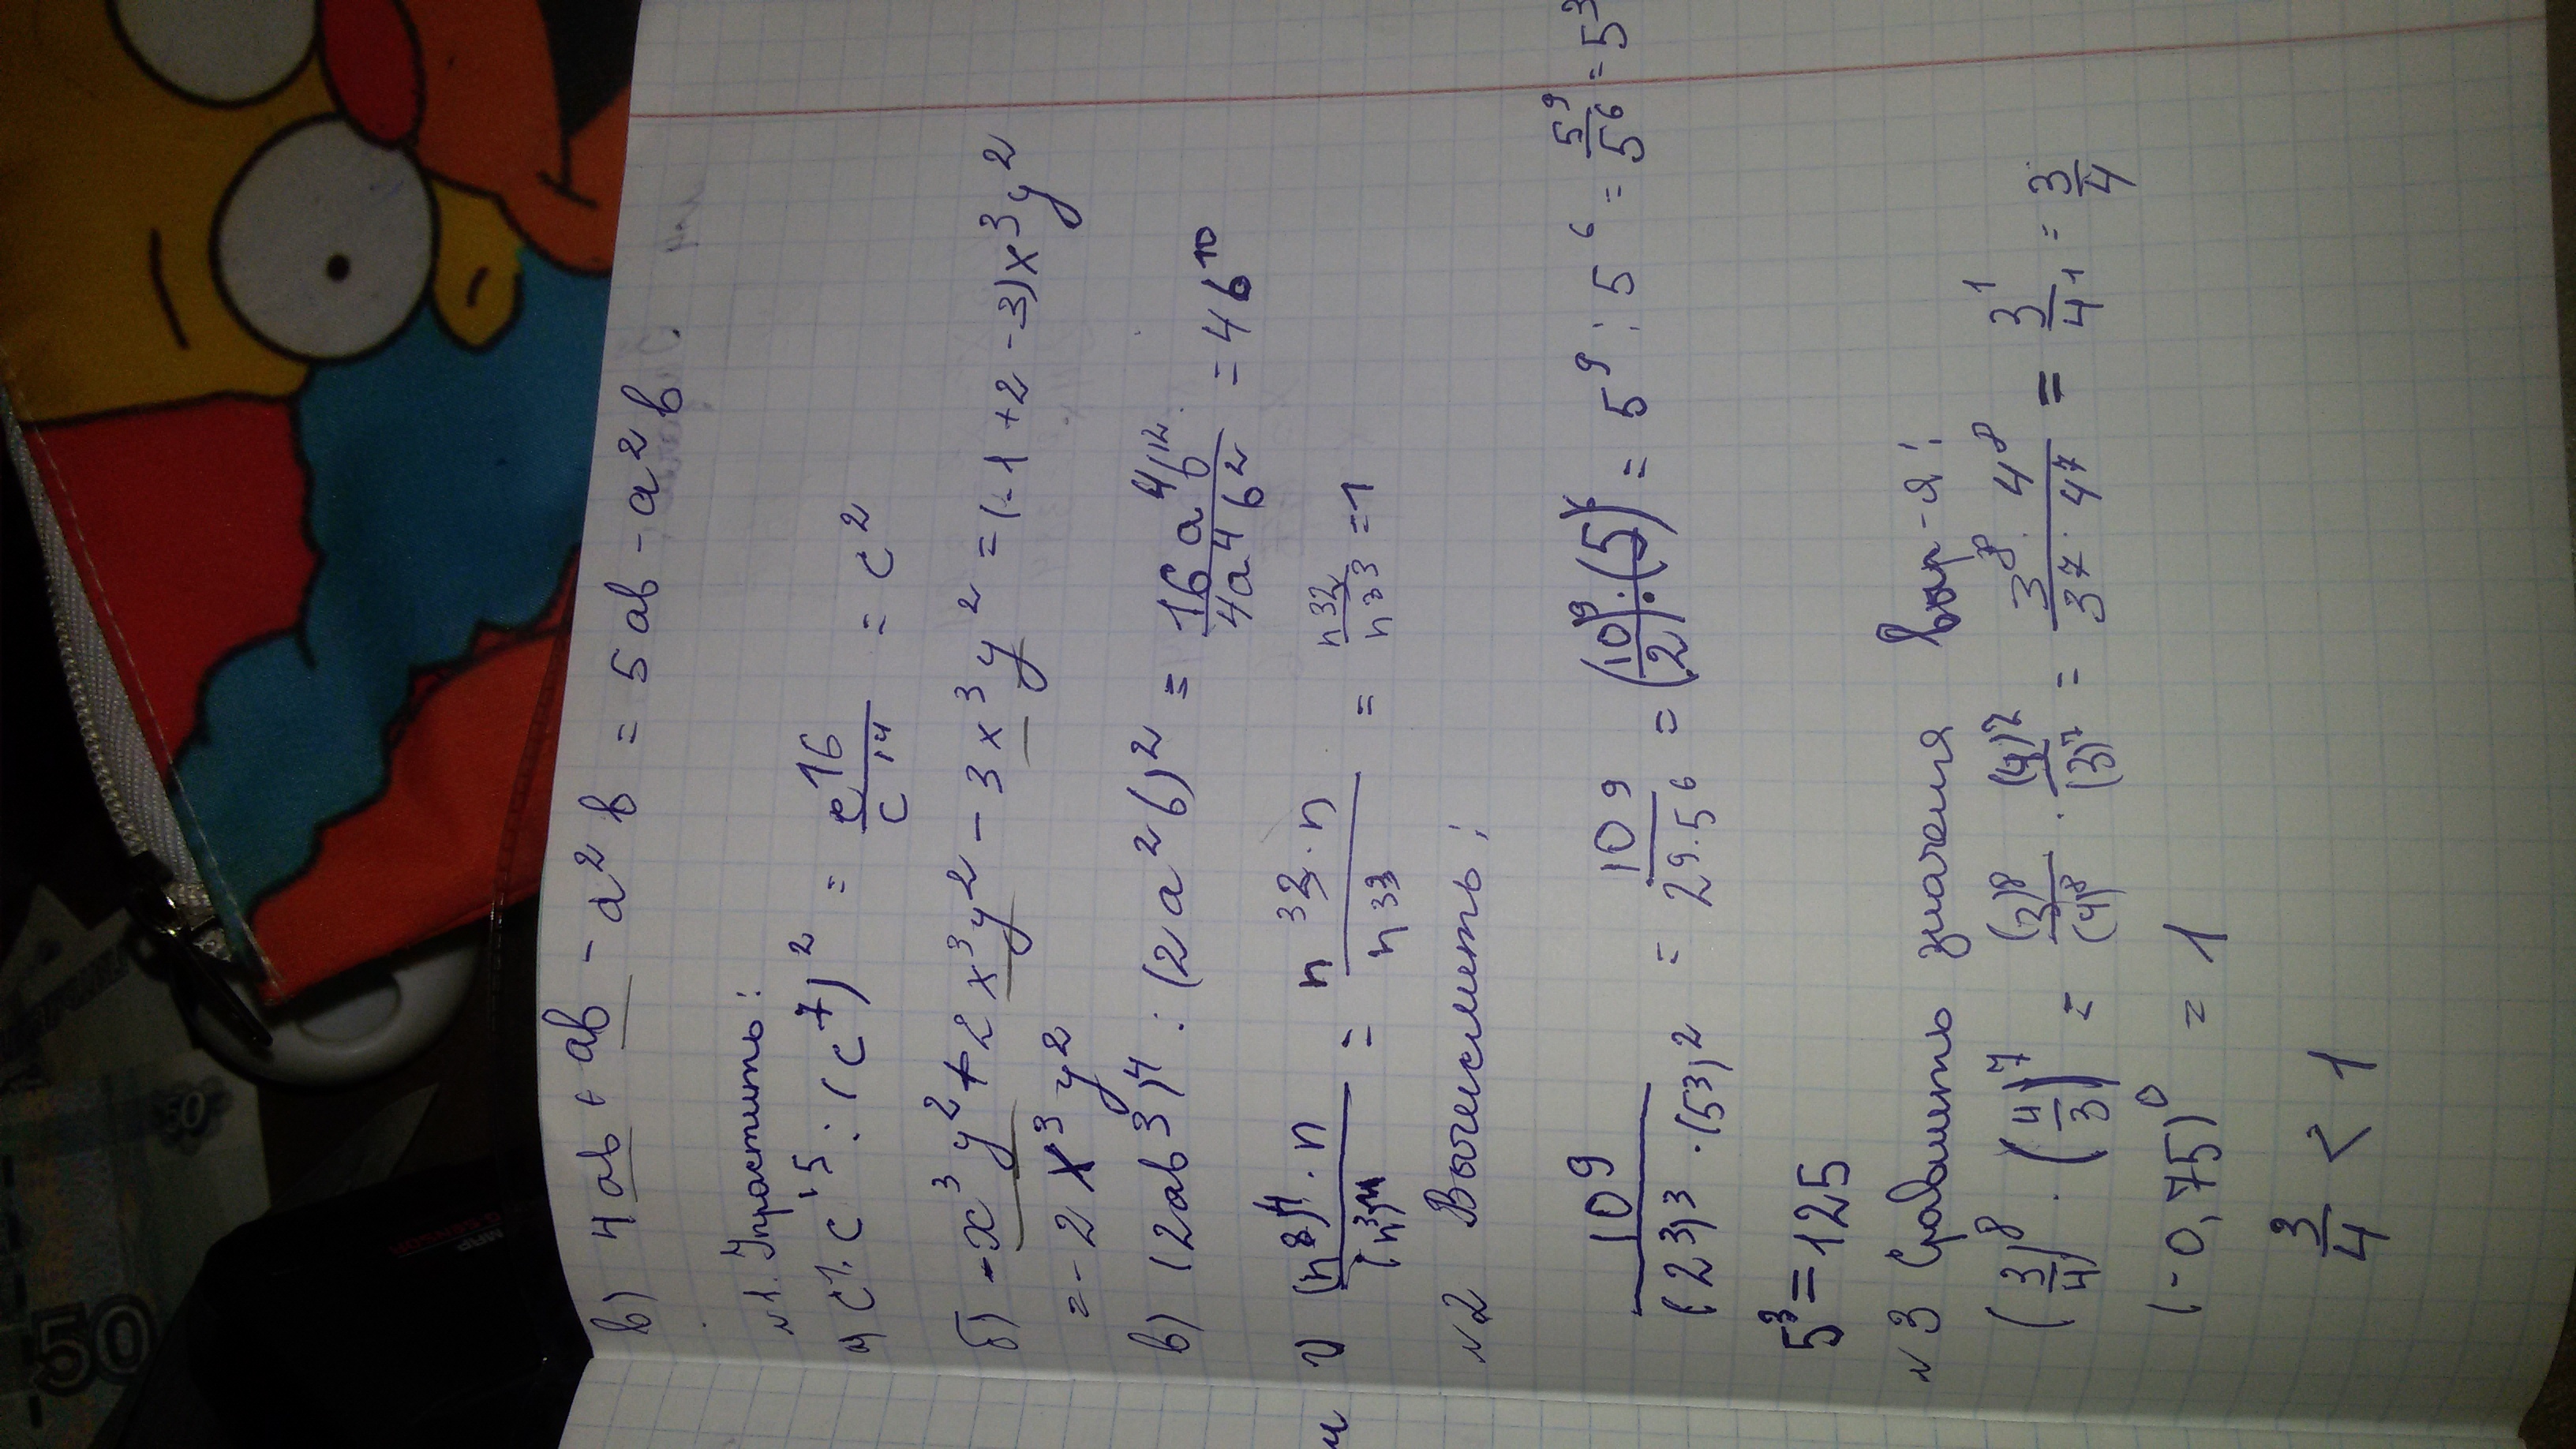 в) 4ab + ab - a²b = 5ab - a²b
№1. Упростить:
а) c¹·c¹⁵ : (c⁷)² = c¹⁶/c¹⁴ = c²
б) -x³y² + 2x³y² - 3x³y² = (-1+2-3)x³y²
= -2x³y²
в) (2ab³)⁴ : (2a²b)² = 16a⁴b¹²/4a⁴b² = 4b¹⁰
= n³²·n/n³³ = =1
№2 Вычислить:
10⁹/(2³)³·(5³)² = 10⁹/2⁹·5⁶ = = 5⁹ : 5⁶ = 5⁹/5⁶ = 5³
5³ = 125
№3 Сравнить значения выр-я:
(3/4)⁸ · (4/3)⁷ = (3)⁸/(4)⁸ · (4)⁷/(3)⁷ = = 3¹/4¹ = 3/4
(-0,75)⁰ = 1
3/4 < 1
50
50